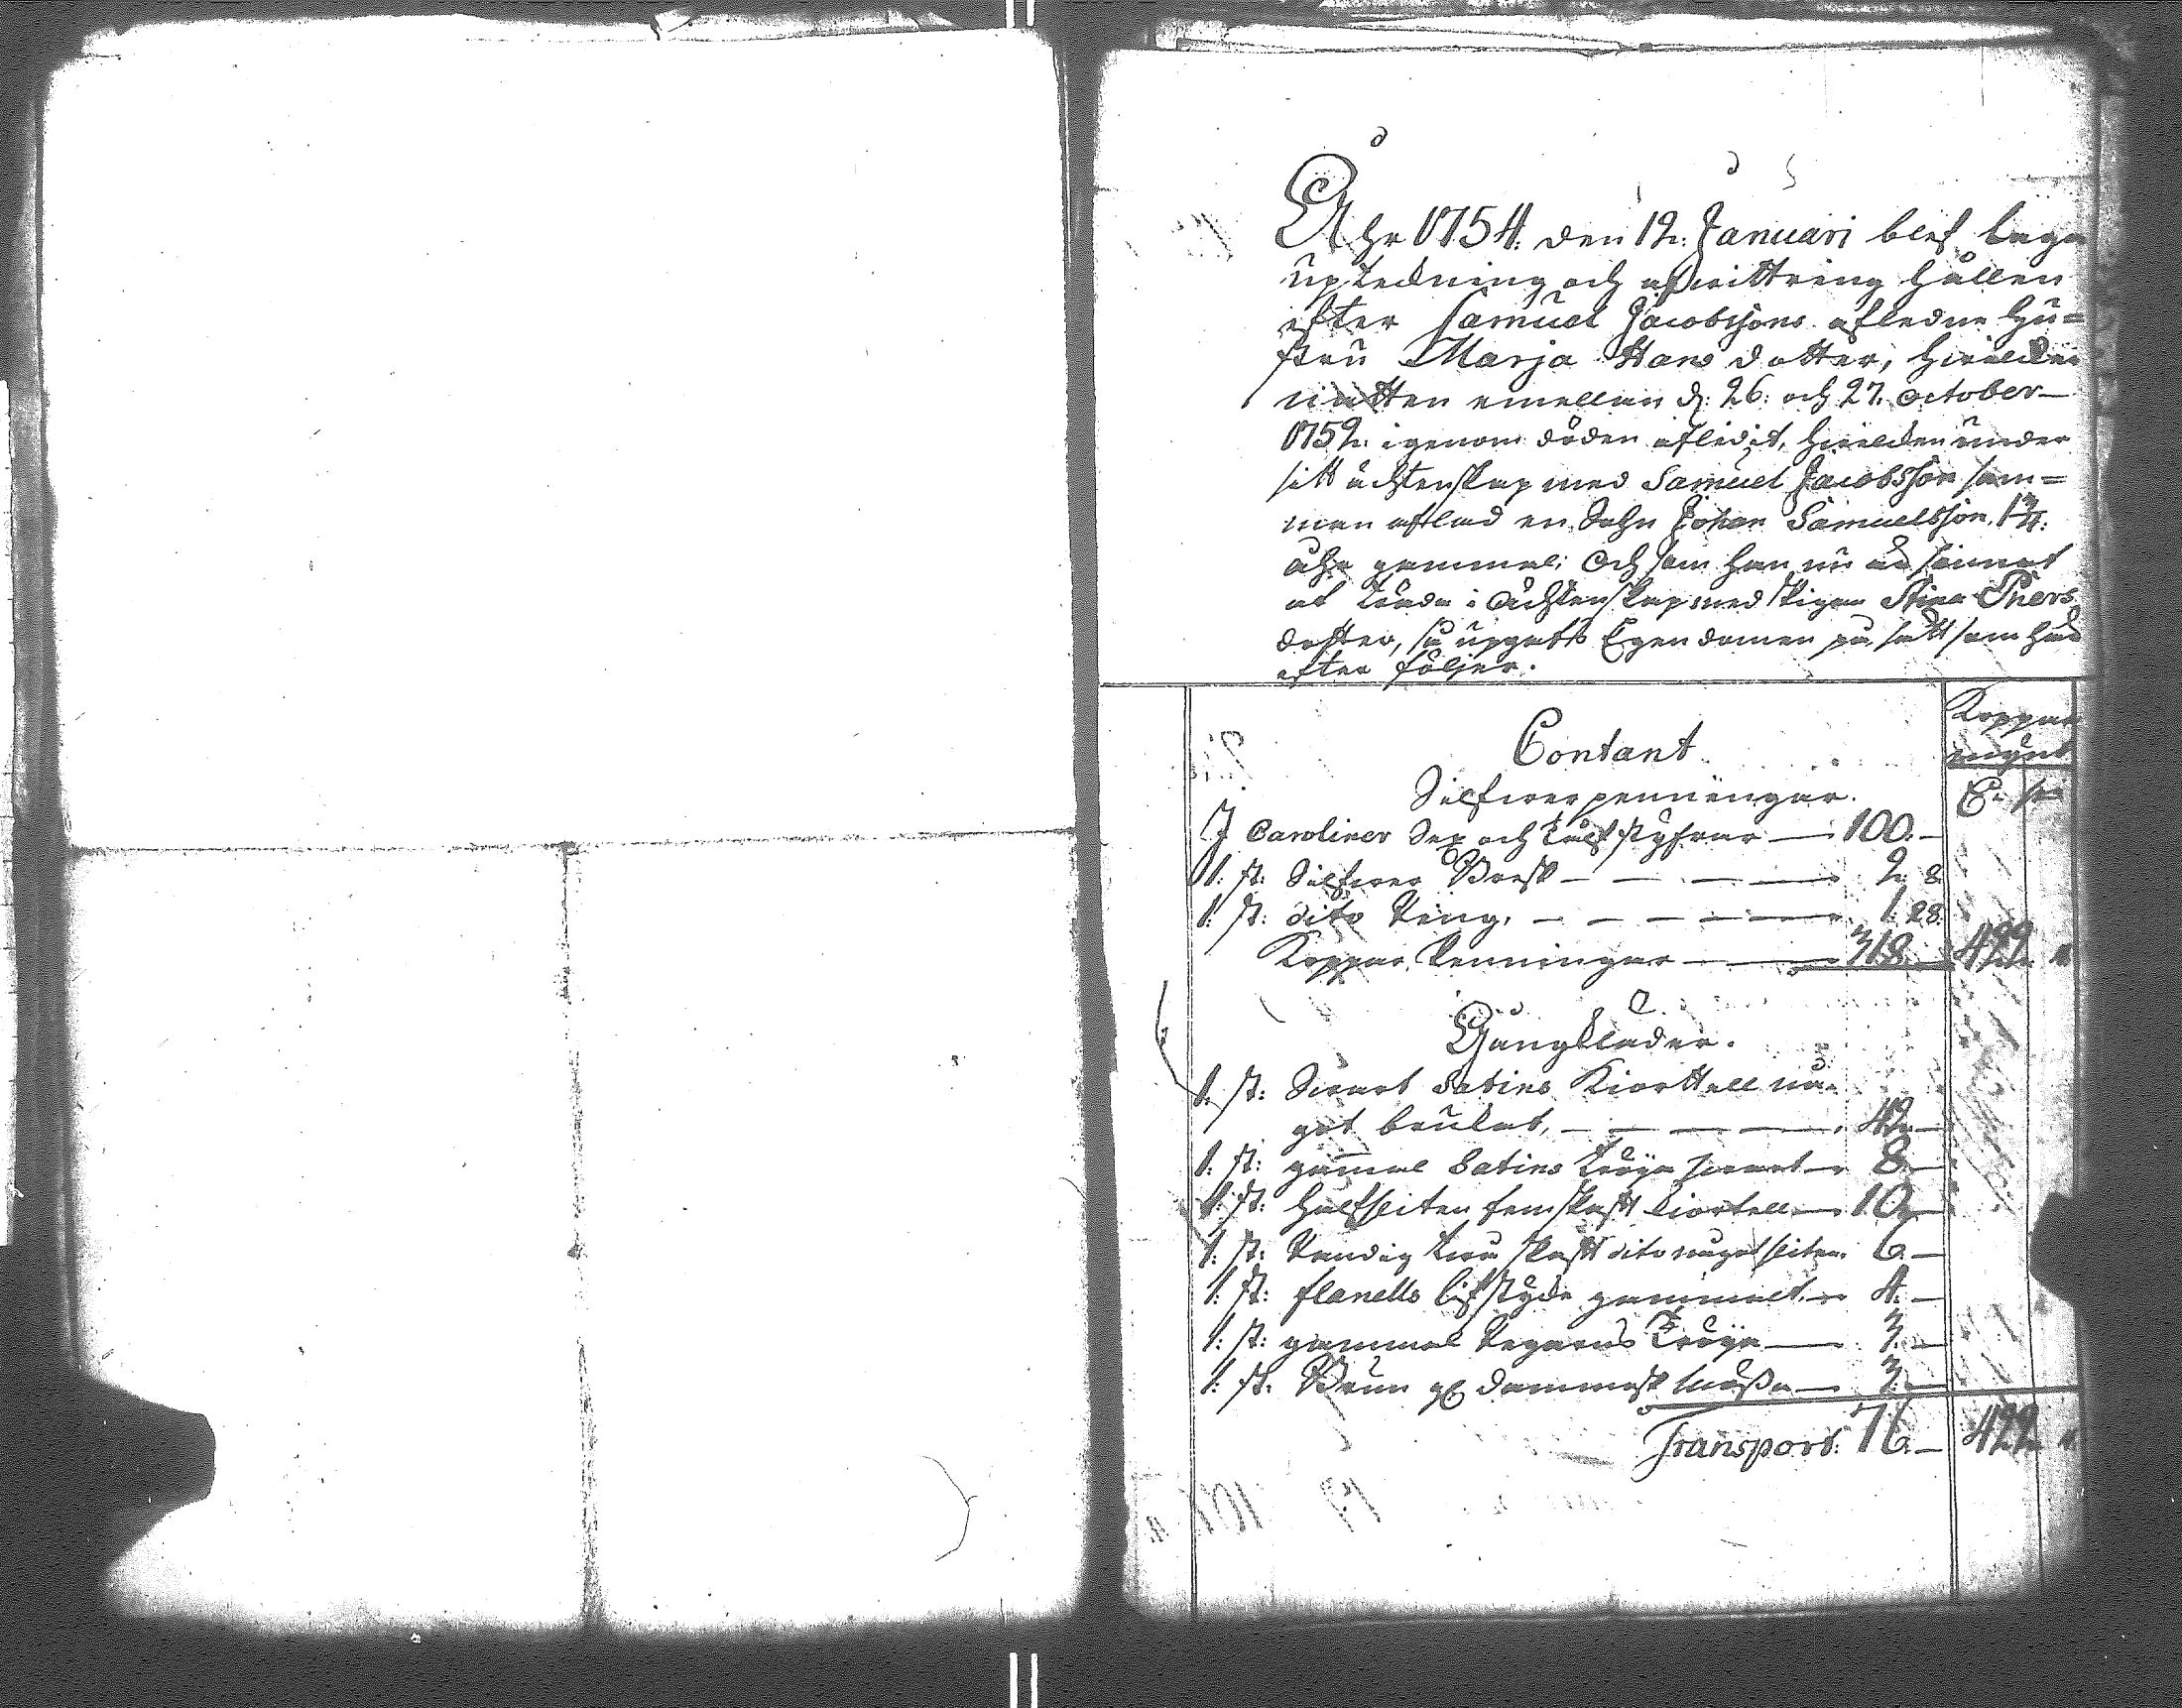 Åhr 1754. den 12. Januari blef laga
upteckning och afwittring hållen
efter Samuel Jacobssons afledne hu=
stru Marja Hans dotter, hwilcken
natten emellan d: 26. och 27. october
1752. igenom döden afledit, hwilcken under
sitt ächtenskap med Samuel Jacobsson sam=
man aflad en Sohn Johan Samuelsson, 1 3/4:
åhr gammal; Och som han nu är sinnat
at träda i Ächtenskap med Pigan Stina Pners
dotter, så upgafs Egendomen på sätt som här
efter följer.
Koppar
mynt
Contant
Silfwer penningar.
I Caroliner Sex och tålf styfrar — 100. —
1. st: Silfwer Brask — — — 2. 8.
1. st: dito Ring, — — — 1. 28.
Koppar Penningar — 318. — 422 "
Gångkläder.
1. st: Swart Satins Kiorttell nå=
got brukat, — — — 42. —
1. st: gammal Satins tröja swart — 8. —
1. st: halfsliten femskafft kiortell — 10. —
1. st: Randig twåskafft dito något sliten 6. —
1. st: flanells lifstycke gammalt — 4. —
1. st: gammal Tröija — 3. —
1. st. Brun gl dammask mössa — 3. —
Transport: 76. — 422 "